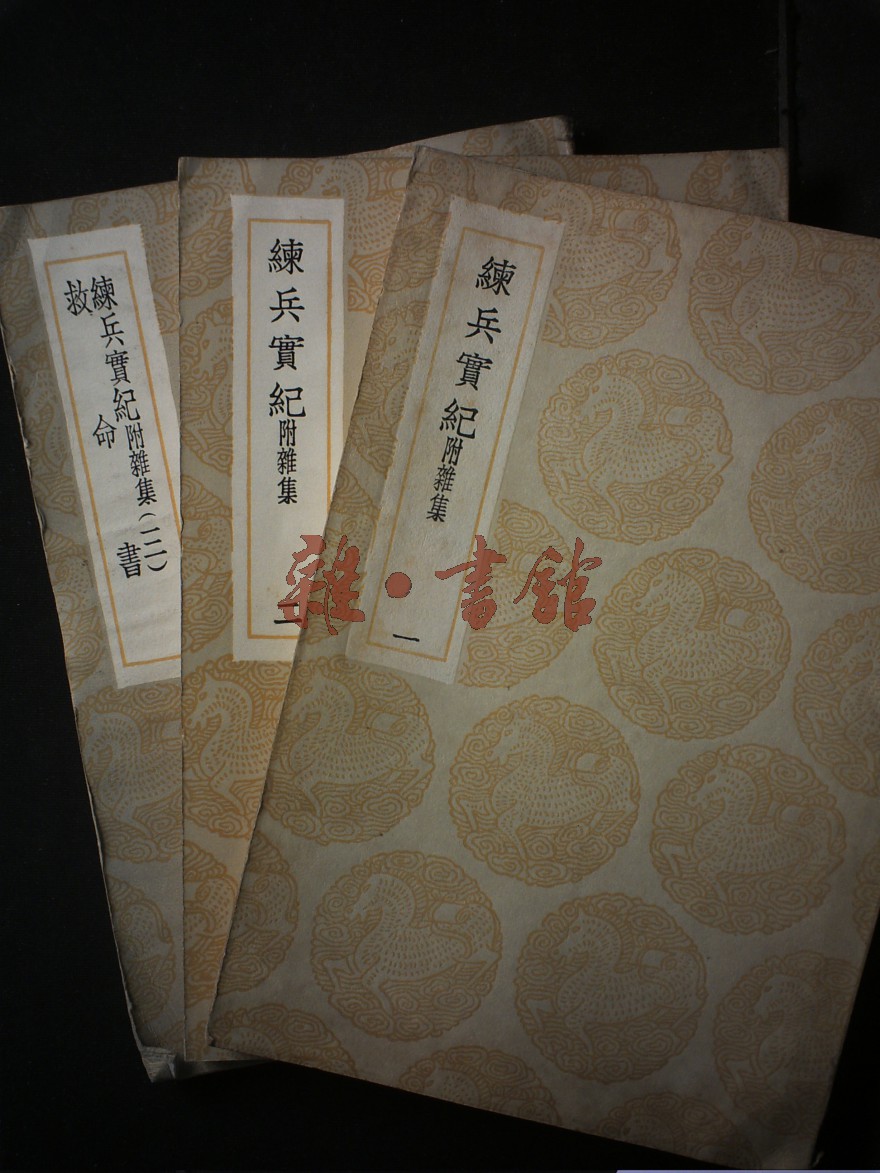 練兵實紀附雜集
一
練兵實紀附雜集
二
練兵實紀附雜集(三)
救命書
雜·書館